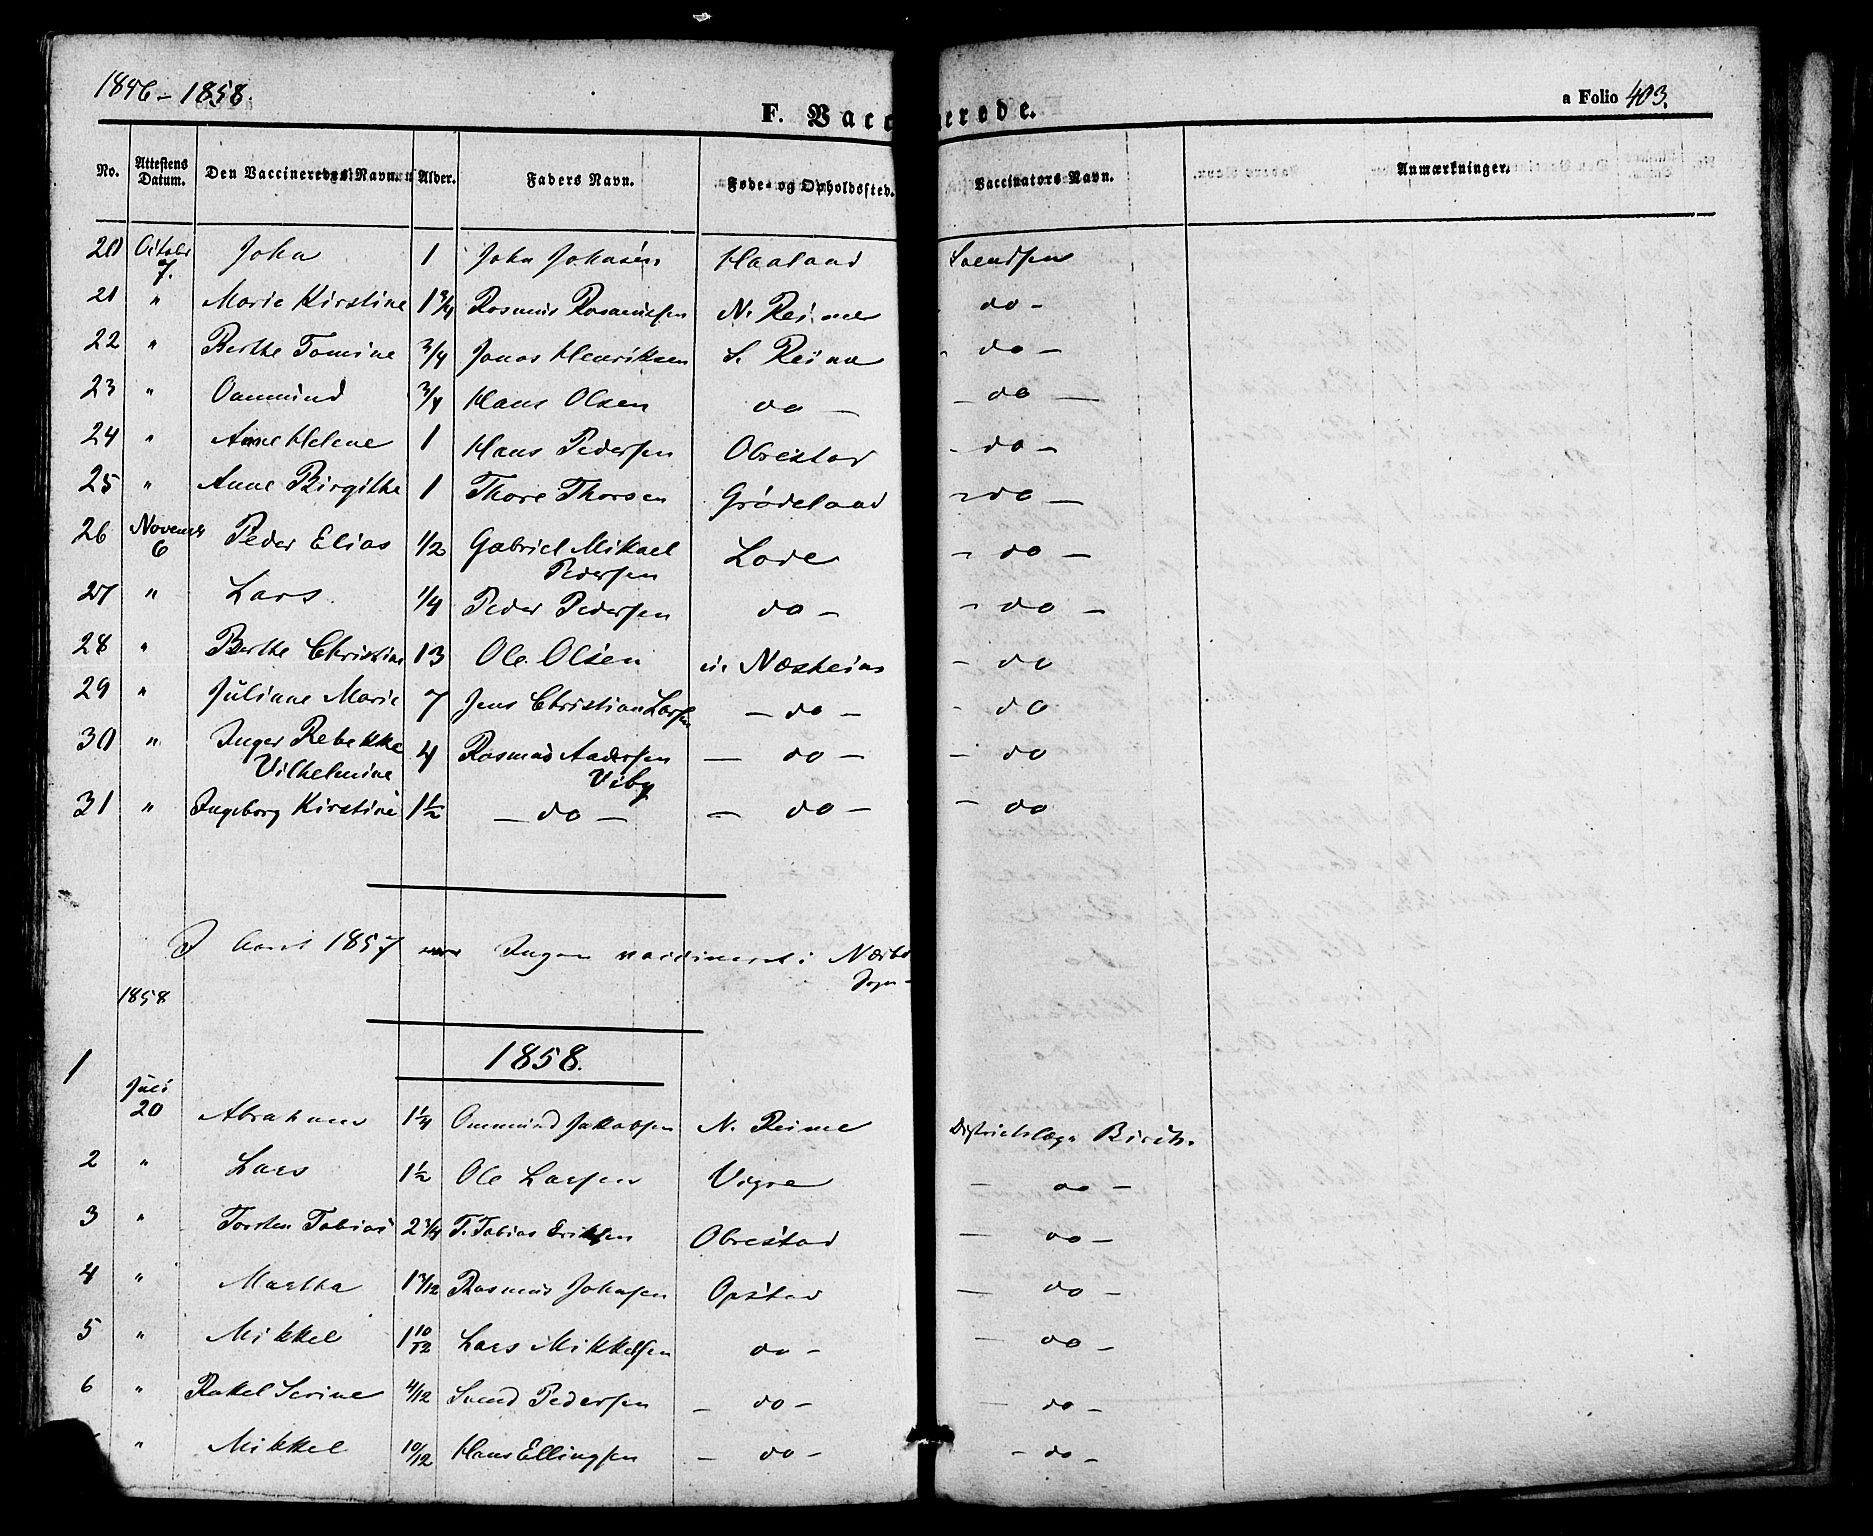 1856-1858.
F. Vacc nerede. a Folio 403.
No. Attestens Datum. Den Vaccineredes Navn. Alder. Faders Navn. Føde- og Opholdssted. Vaccinators Navn. Anmærkninger.
20 Octobr 7. John 1 John Johnsen Haaland Svendsen
21 " Marie Kirstine 1 3/4 Rasmus Rasmussen N. Reime do -
22 " Berthe Tomine 3/4 Jonas Henriksen S. Reime do -
23 " Ommund 3/4 Hans Olsen do - - do -
24 " Anne Helene 1 Hans Pedersen Obrestad - do -
25 " Anne Birgithe 1 Thore Thorsen Grødeland - do -
26 Novembr 6 Peder Elias 1/2 Gabriel Mikael Pedersen Lode - do -
27 " Lars 1/4 Peder Pedersen do - - do -
28 " Berthe Christine 13 Ole Olsen Næsheim - do
29 " Juliane Marie 7 Jens Christian Larsen - do - - do
30 " Inger Rebekke Vilhelmine 4 Rasmus Andersen Viby - do - - do
31 " Ingeborg Kirstine 1 1/2 - do - - do - - do
I Aaret 1857 Ingen vaccineret i Nærbø Sogn -
1858
1858.
1 Juli 20 Abraham 1 1/4 Ommund Jakobsen N. Reime Districtslæge Birch.
2 " Lars 1 1/2 Ole Larsen Vigre - do -
3 " Torsten Tobias 2 3/4 T. Tobias Eriksen Obrestad - do -
4 " Martha 1 3/12 Rasmus Johnsen Opstad - do -
5 " Mikkel 1 10/12 Lars Mikkelsen do - - do -
6 " Rakel Serine 4/12 Svend Pedersen - do - - do -
" Mikkel 10/12 Hans Ellingsen - do - - do -